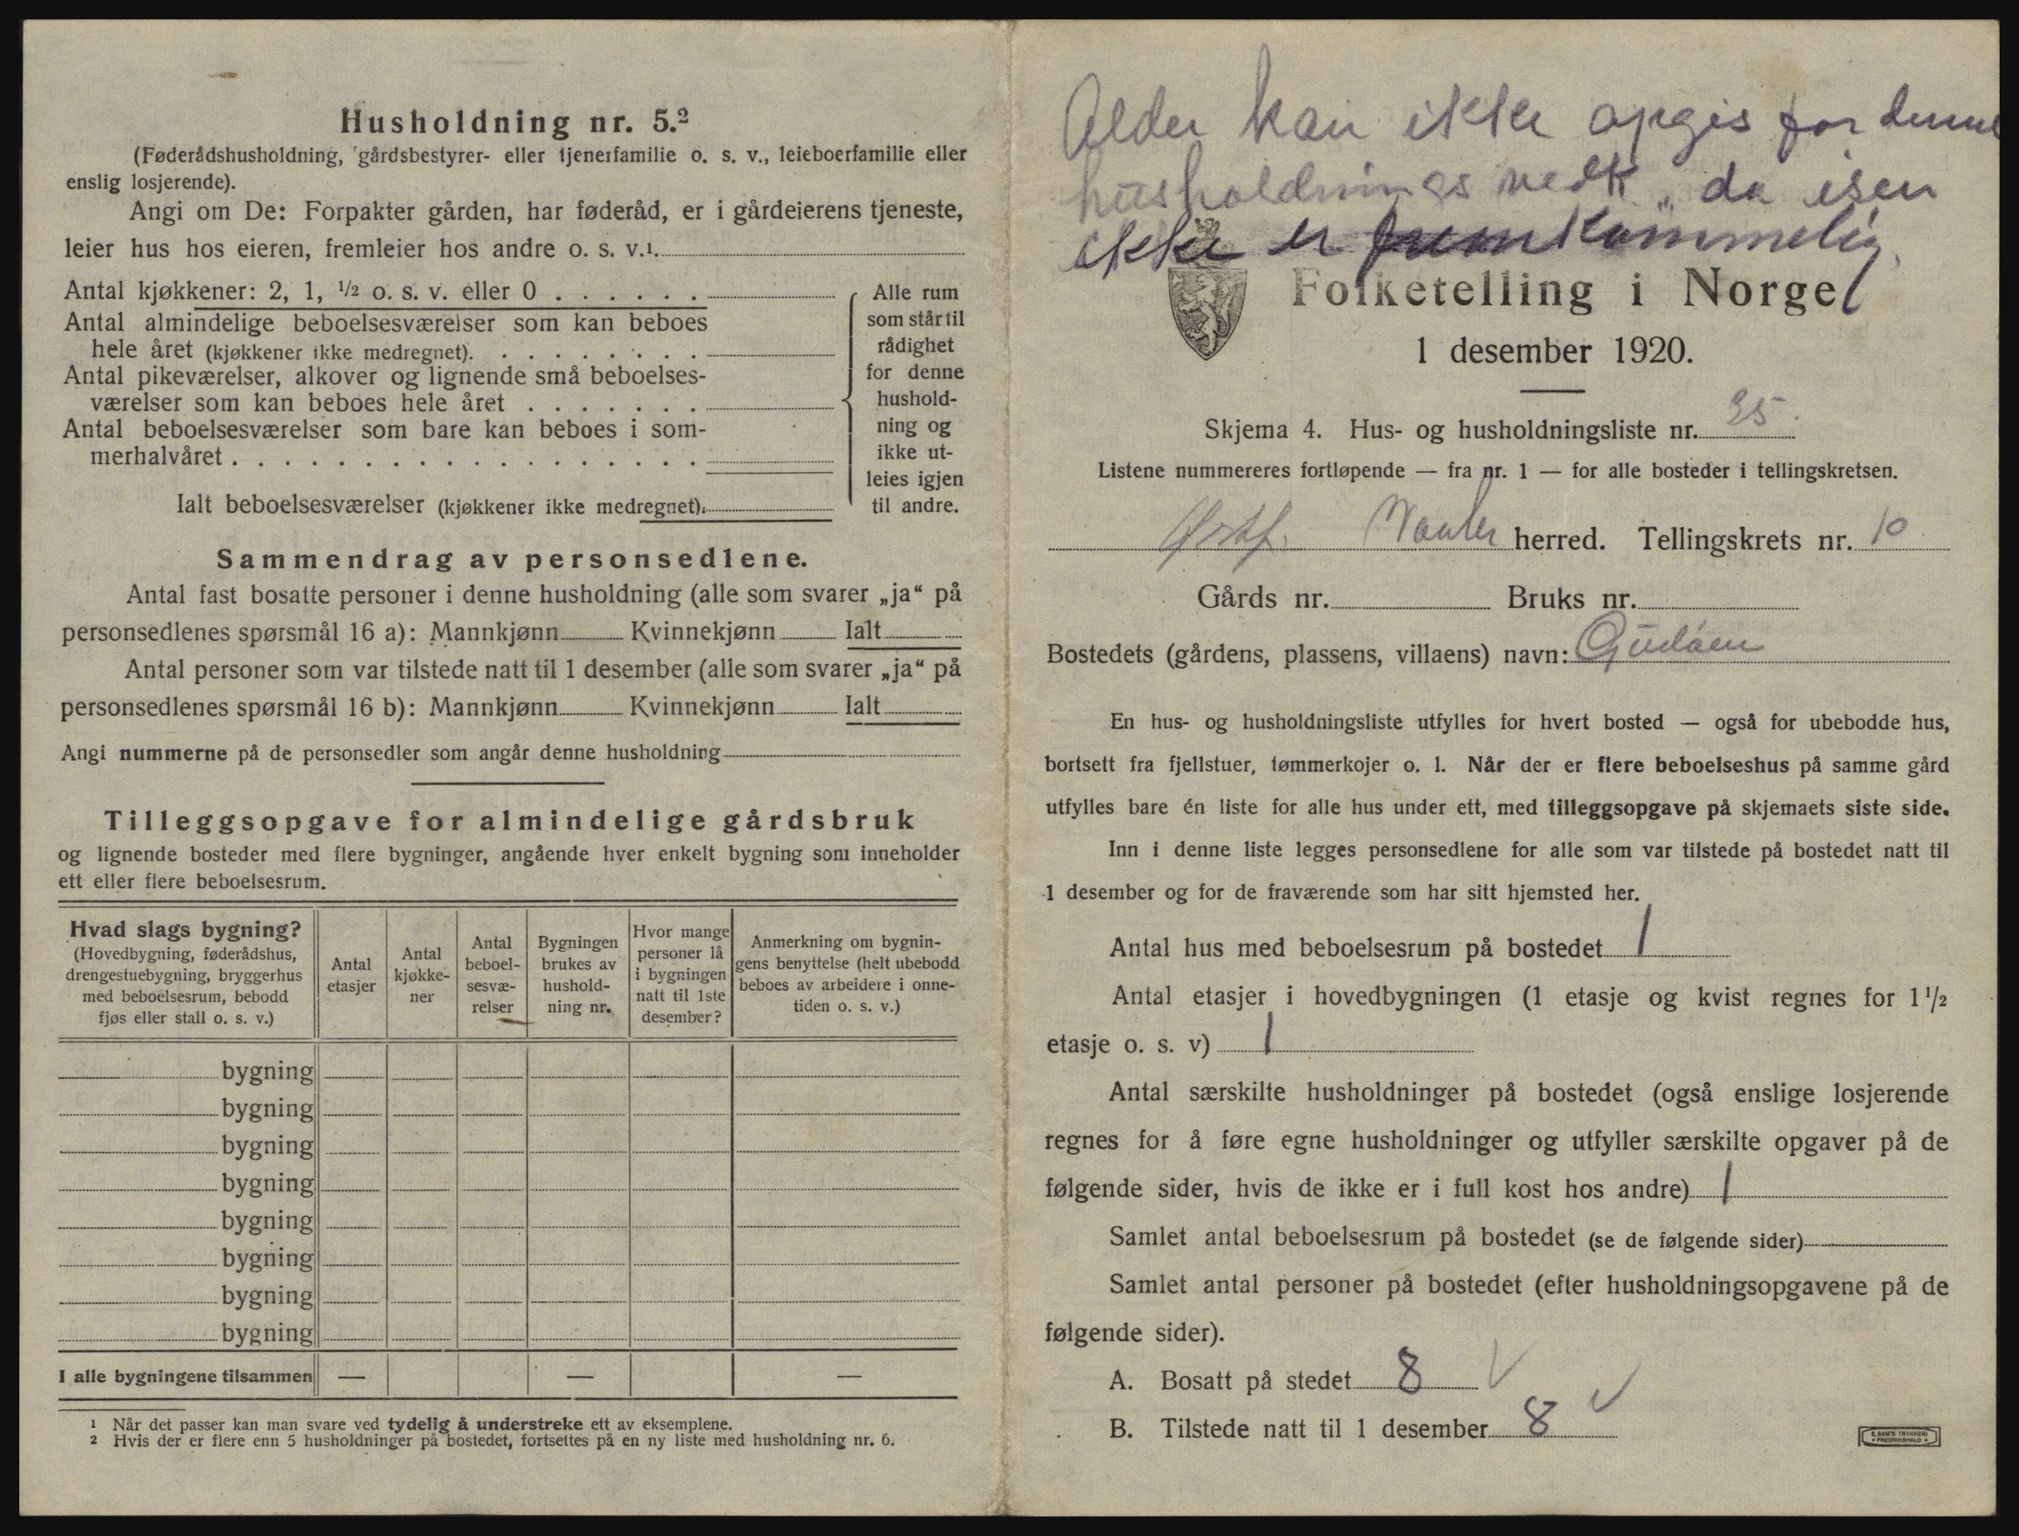 Husholdning nr. 5.²
(Føderådshusholdning, gårdsbestyrer- eller tjenerfamilie o. s. v., leieboerfamilie eller
enslig losjerende).
Angi om De: Forpakter gården, har føderåd, er i gårdeierens tjeneste,
leier hus hos eieren, fremleier hos andre o. s. v.¹.
Antal kjøkkener: 2, 1, ½ o. s. v. eller 0 . . . . . .
Antal almindelige beboelsesværelser som kan beboes
hele året (kjøkkener ikke medregnet). . . . . . . . .
Antal pikeværelser, alkover og lignende små beboelses-
værelser som kan beboes hele året . . . . . . .
Antal beboelsesværelser som bare kan beboes i som-
merhalvåret . . . . . . . . . . . . . . . . . .
Ialt beboelsesværelser (kjøkkener ikke medregnet).
Alle rum
som står til
rådighet
for denne
hushold-
ning og
ikke ut-
leies igjen
til andre.
Sammendrag av personsedlene.
Antal fast bosatte personer i denne husholdning (alle som svarer „ja“ på
personsedlenes spørsmål 16 a): Mannkjønn Kvinnekjønn Ialt
Antal personer som var tilstede natt til 1 desember (alle som svarer „ja“ på
personsedlenes spørsmål 16 b): Mannkjønn Kvinnekjønn Ialt
Angi nummerne på de personsedler som angår denne husholdning
Tilleggsopgave for almindelige gårdsbruk
og lignende bosteder med flere bygninger, angående hver enkelt bygning som inneholder
ett eller flere beboelsesrum.
Hvad slags bygning?
(Hovedbygning, føderådshus,
drengestuebygning, bryggerhus
med beboelsesrum, bebodd
fjøs eller stall o. s. v.)
Antal
etasjer
Antal
kjøkke-
ner
Antal
beboel-
sesvæ-
relser
Bygningen
brukes av
hushold-
ning nr.
Hvor mange
personer lå
i bygningen
natt til 1ste
desember?
Anmerkning om bygnin-
gens benyttelse (helt ubebodd
beboes av arbeidere i onne-
tiden o. s. v.)
bygning
bygning
bygning
bygning
bygning
bygning
bygning
bygning
I alle bygningene tilsammen — — —
¹ Når det passer kan man svare ved tydelig å understreke ett av eksemplene.
² Hvis der er flere enn 5 husholdninger på bostedet, fortsettes på en ny liste med husholdning nr. 6.
Alder kan ikke opgis for denne
husholdnings vedk., da isen
ikke er fremkommelig.
Folketelling i Norge
1 desember 1920.
Skjema 4. Hus- og husholdningsliste nr. 35.
Listene nummereres fortløpende — fra nr. 1 — for alle bosteder i tellingskretsen.
Østf. Vaaler herred. Tellingskrets nr. 10
Gårds nr. Bruks nr.
Bostedets (gårdens, plassens, villaens) navn: Gudøen
En hus- og husholdningsliste utfylles for hvert bosted — også for ubebodde hus,
bortsett fra fjellstuer, tømmerkojer o. l. Når der er flere beboelseshus på samme gård
utfylles bare én liste for alle hus under ett, med tilleggsopgave på skjemaets siste side.
Inn i denne liste legges personsedlene for alle som var tilstede på bostedet natt til
1 desember og for de fraværende som har sitt hjemsted her.
Antal hus med beboelsesrum på bostedet 1
Antal etasjer i hovedbygningen (1 etasje og kvist regnes for 1½
etasje o. s. v) 1
Antal særskilte husholdninger på bostedet (også enslige losjerende
regnes for å føre egne husholdninger og utfyller særskilte opgaver på de
følgende sider, hvis de ikke er i full kost hos andre) 1
Samlet antal beboelsesrum på bostedet (se de følgende sider)
Samlet antal personer på bostedet (efter husholdningsopgavene på de
følgende sider).
A. Bosatt på stedet 8
B. Tilstede natt til 1 desember 8